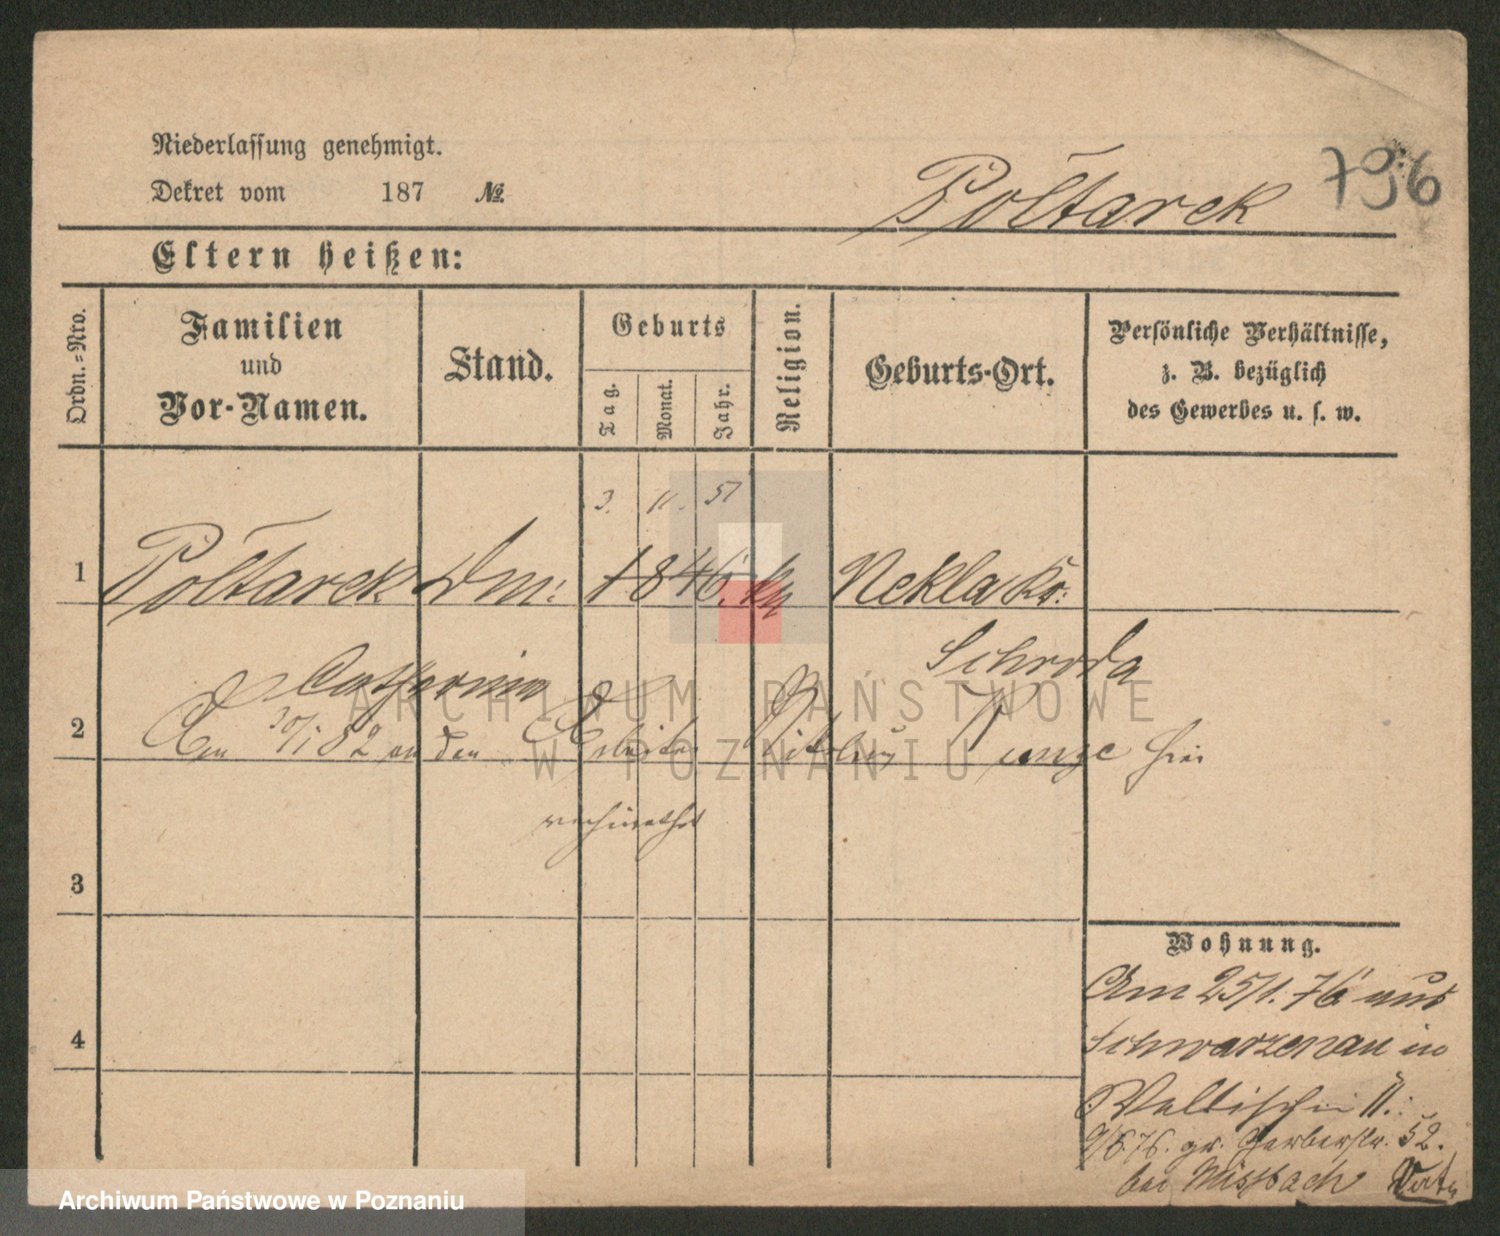 Niederlassung genehmigt.
Dekret vom 187 №.
Połtarek
796
Eltern heißen:
Ordn.-Nro.
Familien
und
Vor-Namen.
Stand.
Geburts
Tag.
Monat.
Jahr.
Religion.
Geburts-Ort.
Persönliche Verhältnisse,
z. B. bezüglich
des Gewerbes u. s. w.
3. 11. 51
1 Połtarek Dm: 1846. Nekla Kr:
Schroda
Catharina
2 Am 30/1 82 an den Arbeiter Runge hier
verheirathet
3
4
Wohnung.
Am 25/1. 76 aus
Schwarzenau in
Wallischei 11.
9/6 76. gr. Gerberstr. 52.
bei Missbach
ARCHIWUM PAŃSTWOWE
W POZNANIU
Archiwum Państwowe w Poznaniu